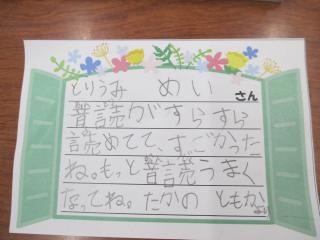 とりうみ めい さん
音読がすらすら
読めてて、すごかった
ね。もっと音読うまく
なってね。たかの ともかより